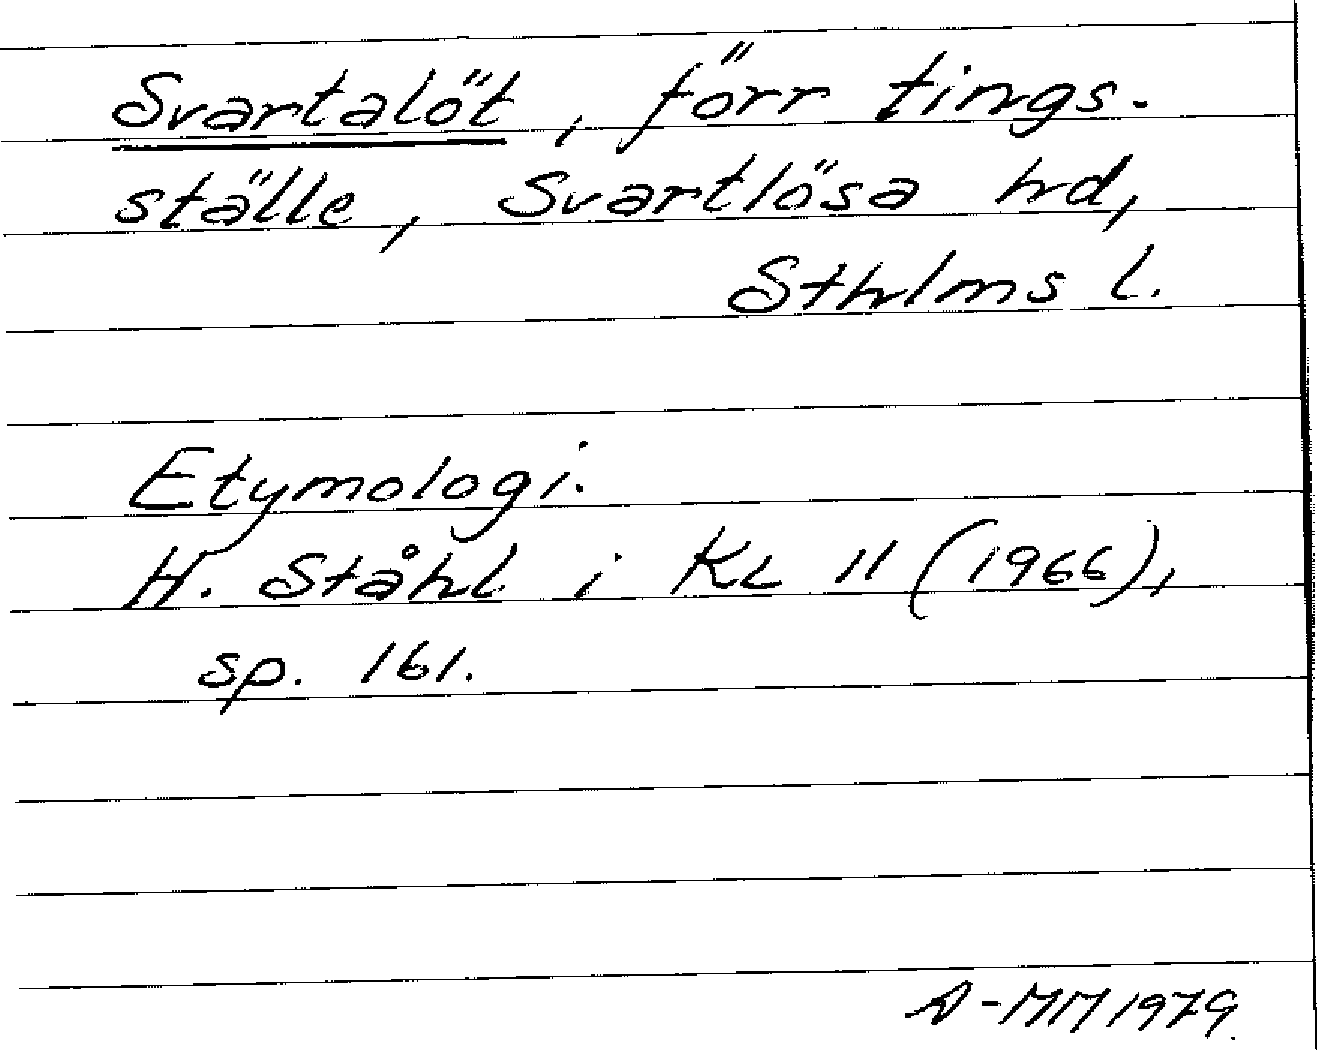 Svartalöt, förr tings-
ställe, Svartlösa hd,
Sthlms l.
Etymologi.
H. Ståhl i KL 11 (1966),
sp. 161.
A-MM 1979.